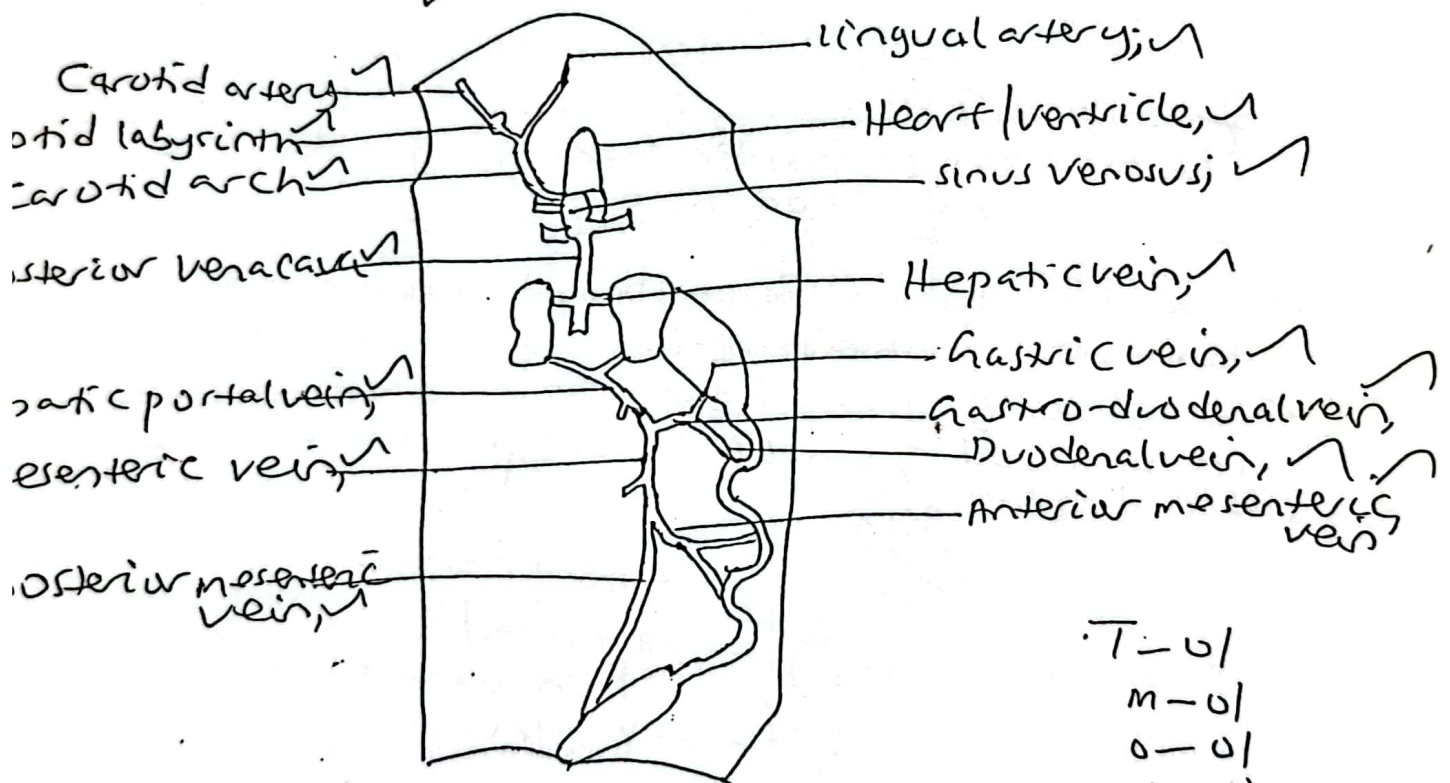 Carotid artery
otid labyrinth
Carotid arch
sterior venacava
patic portal vein,
esenteric vein,
osterior mesenteric
vein,
lingual artery;
Heart/ventricle,
sinus venosus;
Hepatic vein,
Gastric vein,
Gastro-duodenal vein,
Duodenal vein,
Anterior mesenteric
vein
T-01
m-01
0-01